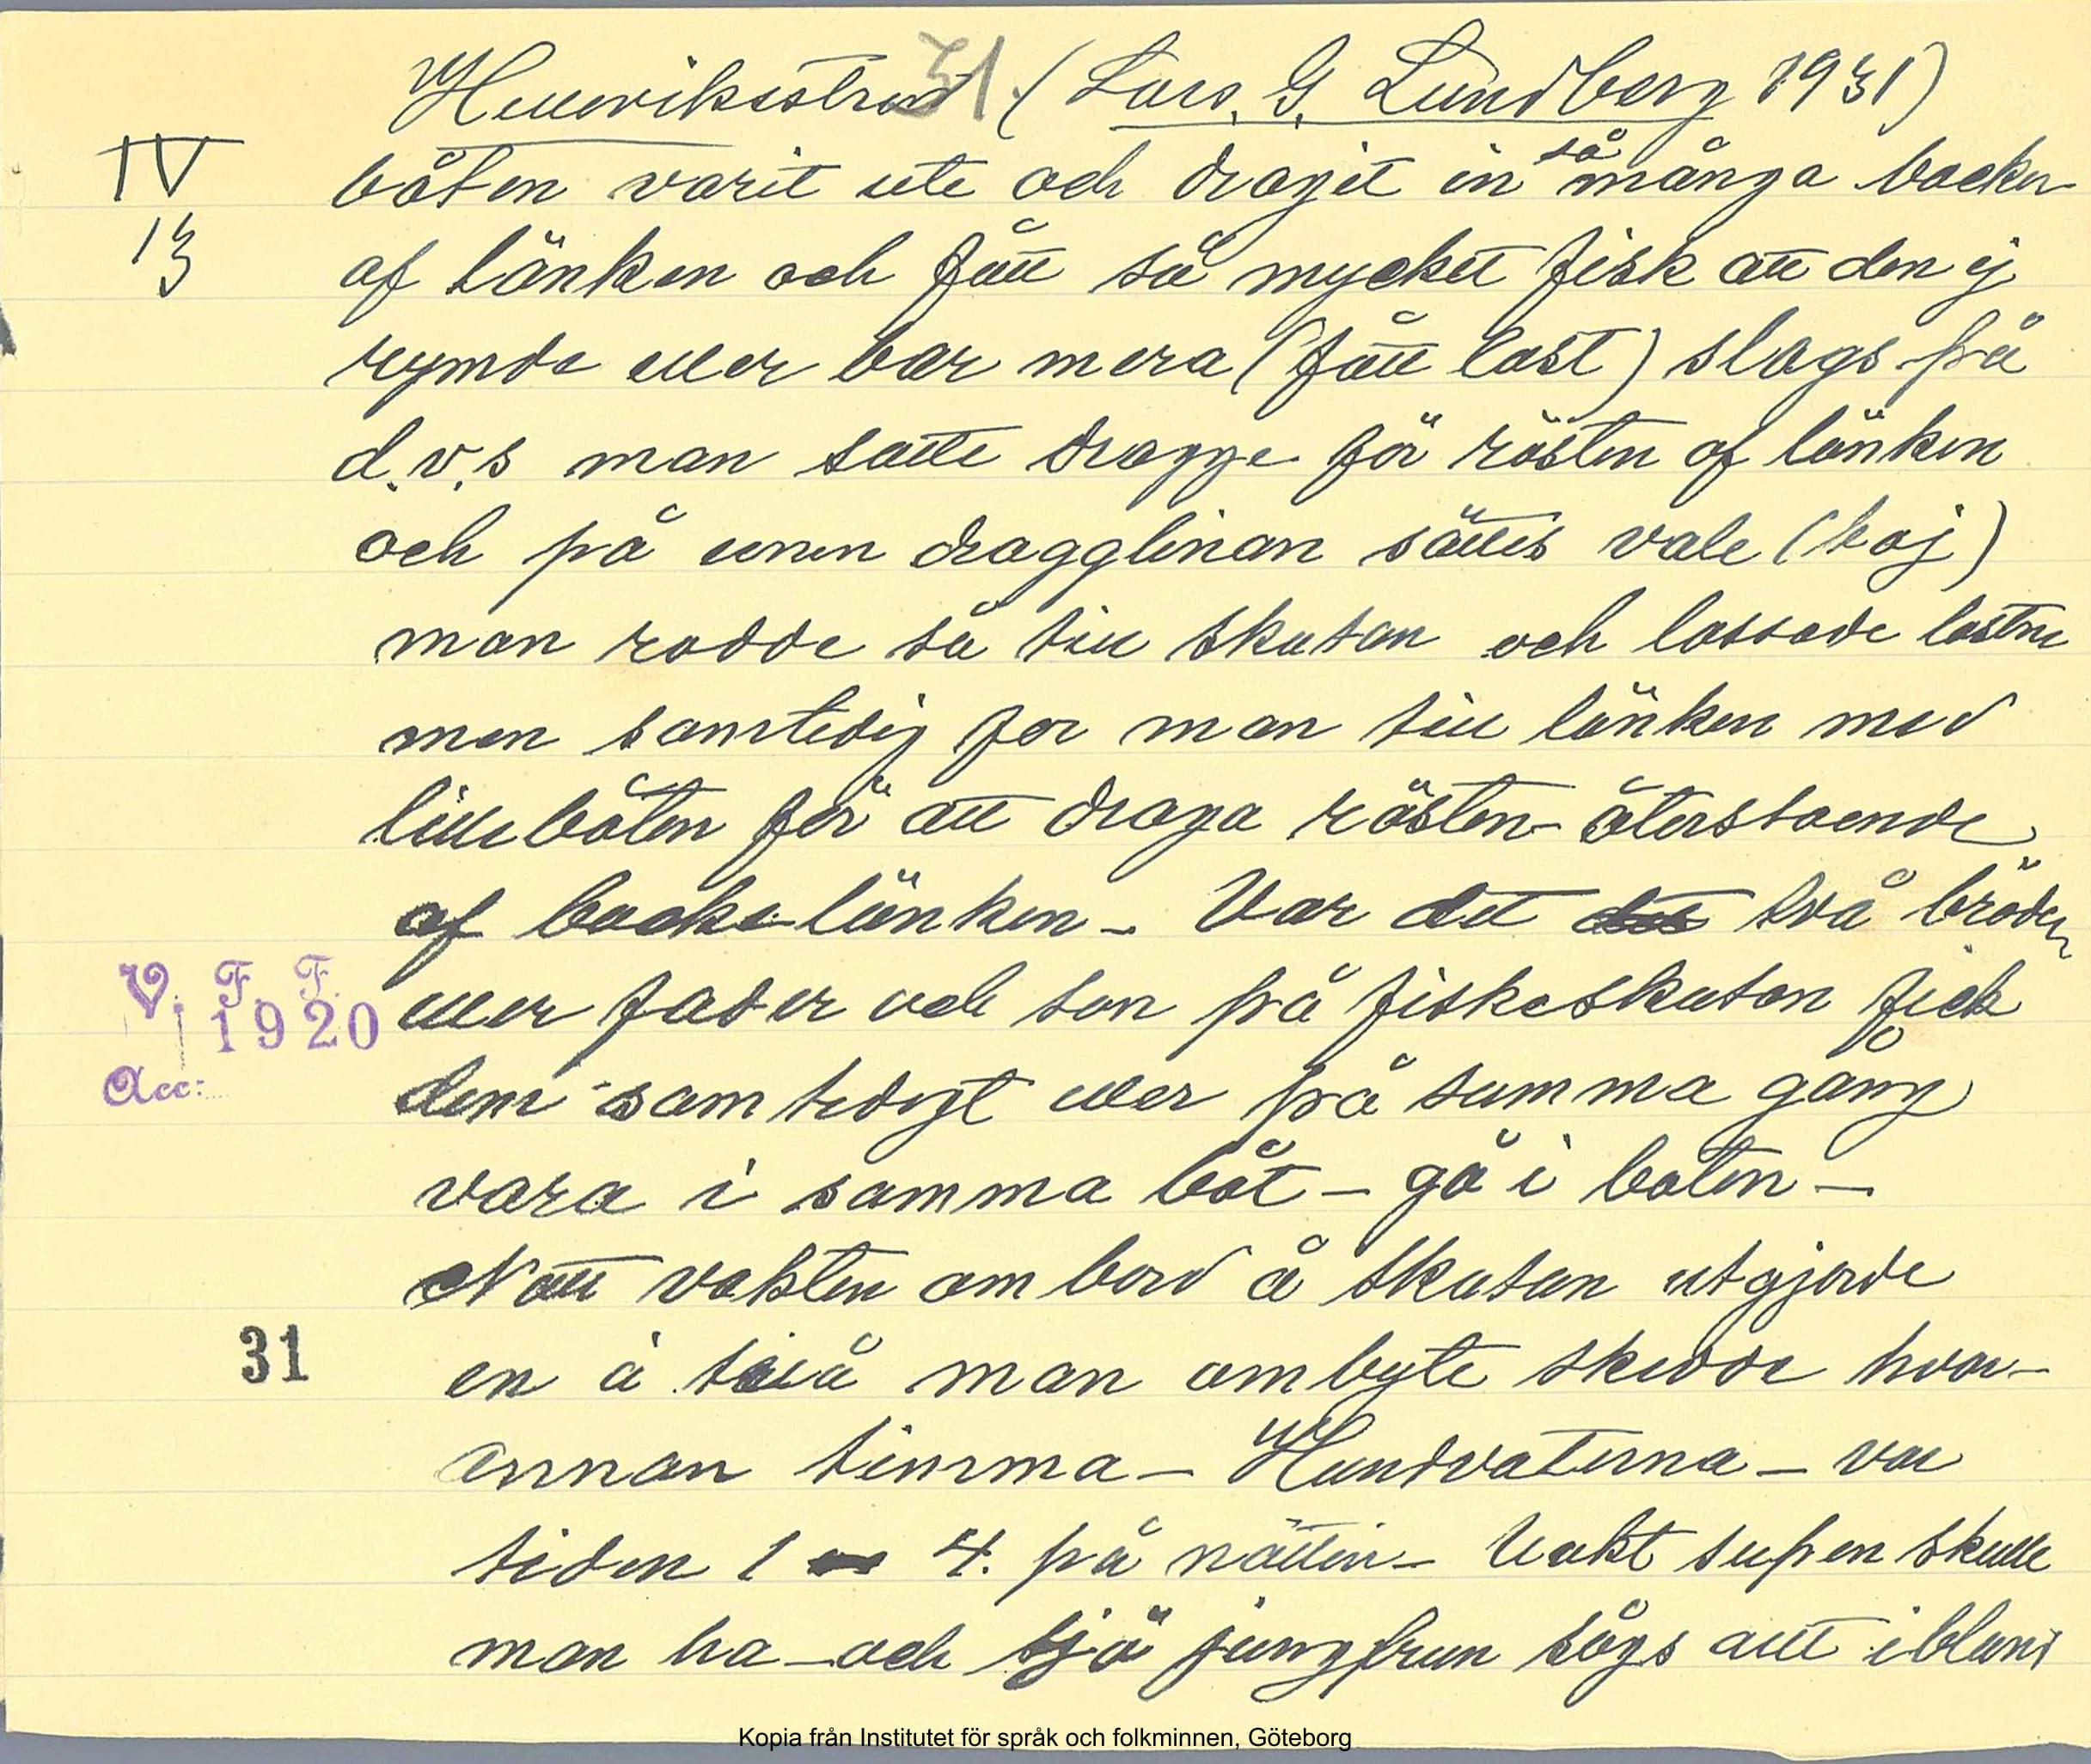 Henriksstrand 31. (Lars. G. Lundberg 1931)
IV
13
båten varit ute och dragit in så många backer
af länken och fått så mycket fisk att den ej
rymde eller bar mera (fått last) slogs på
d.v.s man satte dragge för rästen af länken
och på enen dragglinan sättes vale (boj)
man rodde så till skutan och lossade lasten
men samtidig for man till länken med
lillebåten för att draga rästen återstående
af backelänken – Var det det två bröder
eller fader och son på fiskeskutan fick
dem samtidigt eller på samma gång
vara i samma båt – gå i båten –
Natt vakten om bord å skutan utgjorde
en à två man ombyte skedde hvar-
annan timma – Hundvaterna – var
tiden 1 – 4. på natten – Vakt supen skulle
man ha – och sjö jungfrun sågs att ibland
V. F. F.
1920
Acc:
31
Kopia från Institutet för språk och folkminnen, Göteborg